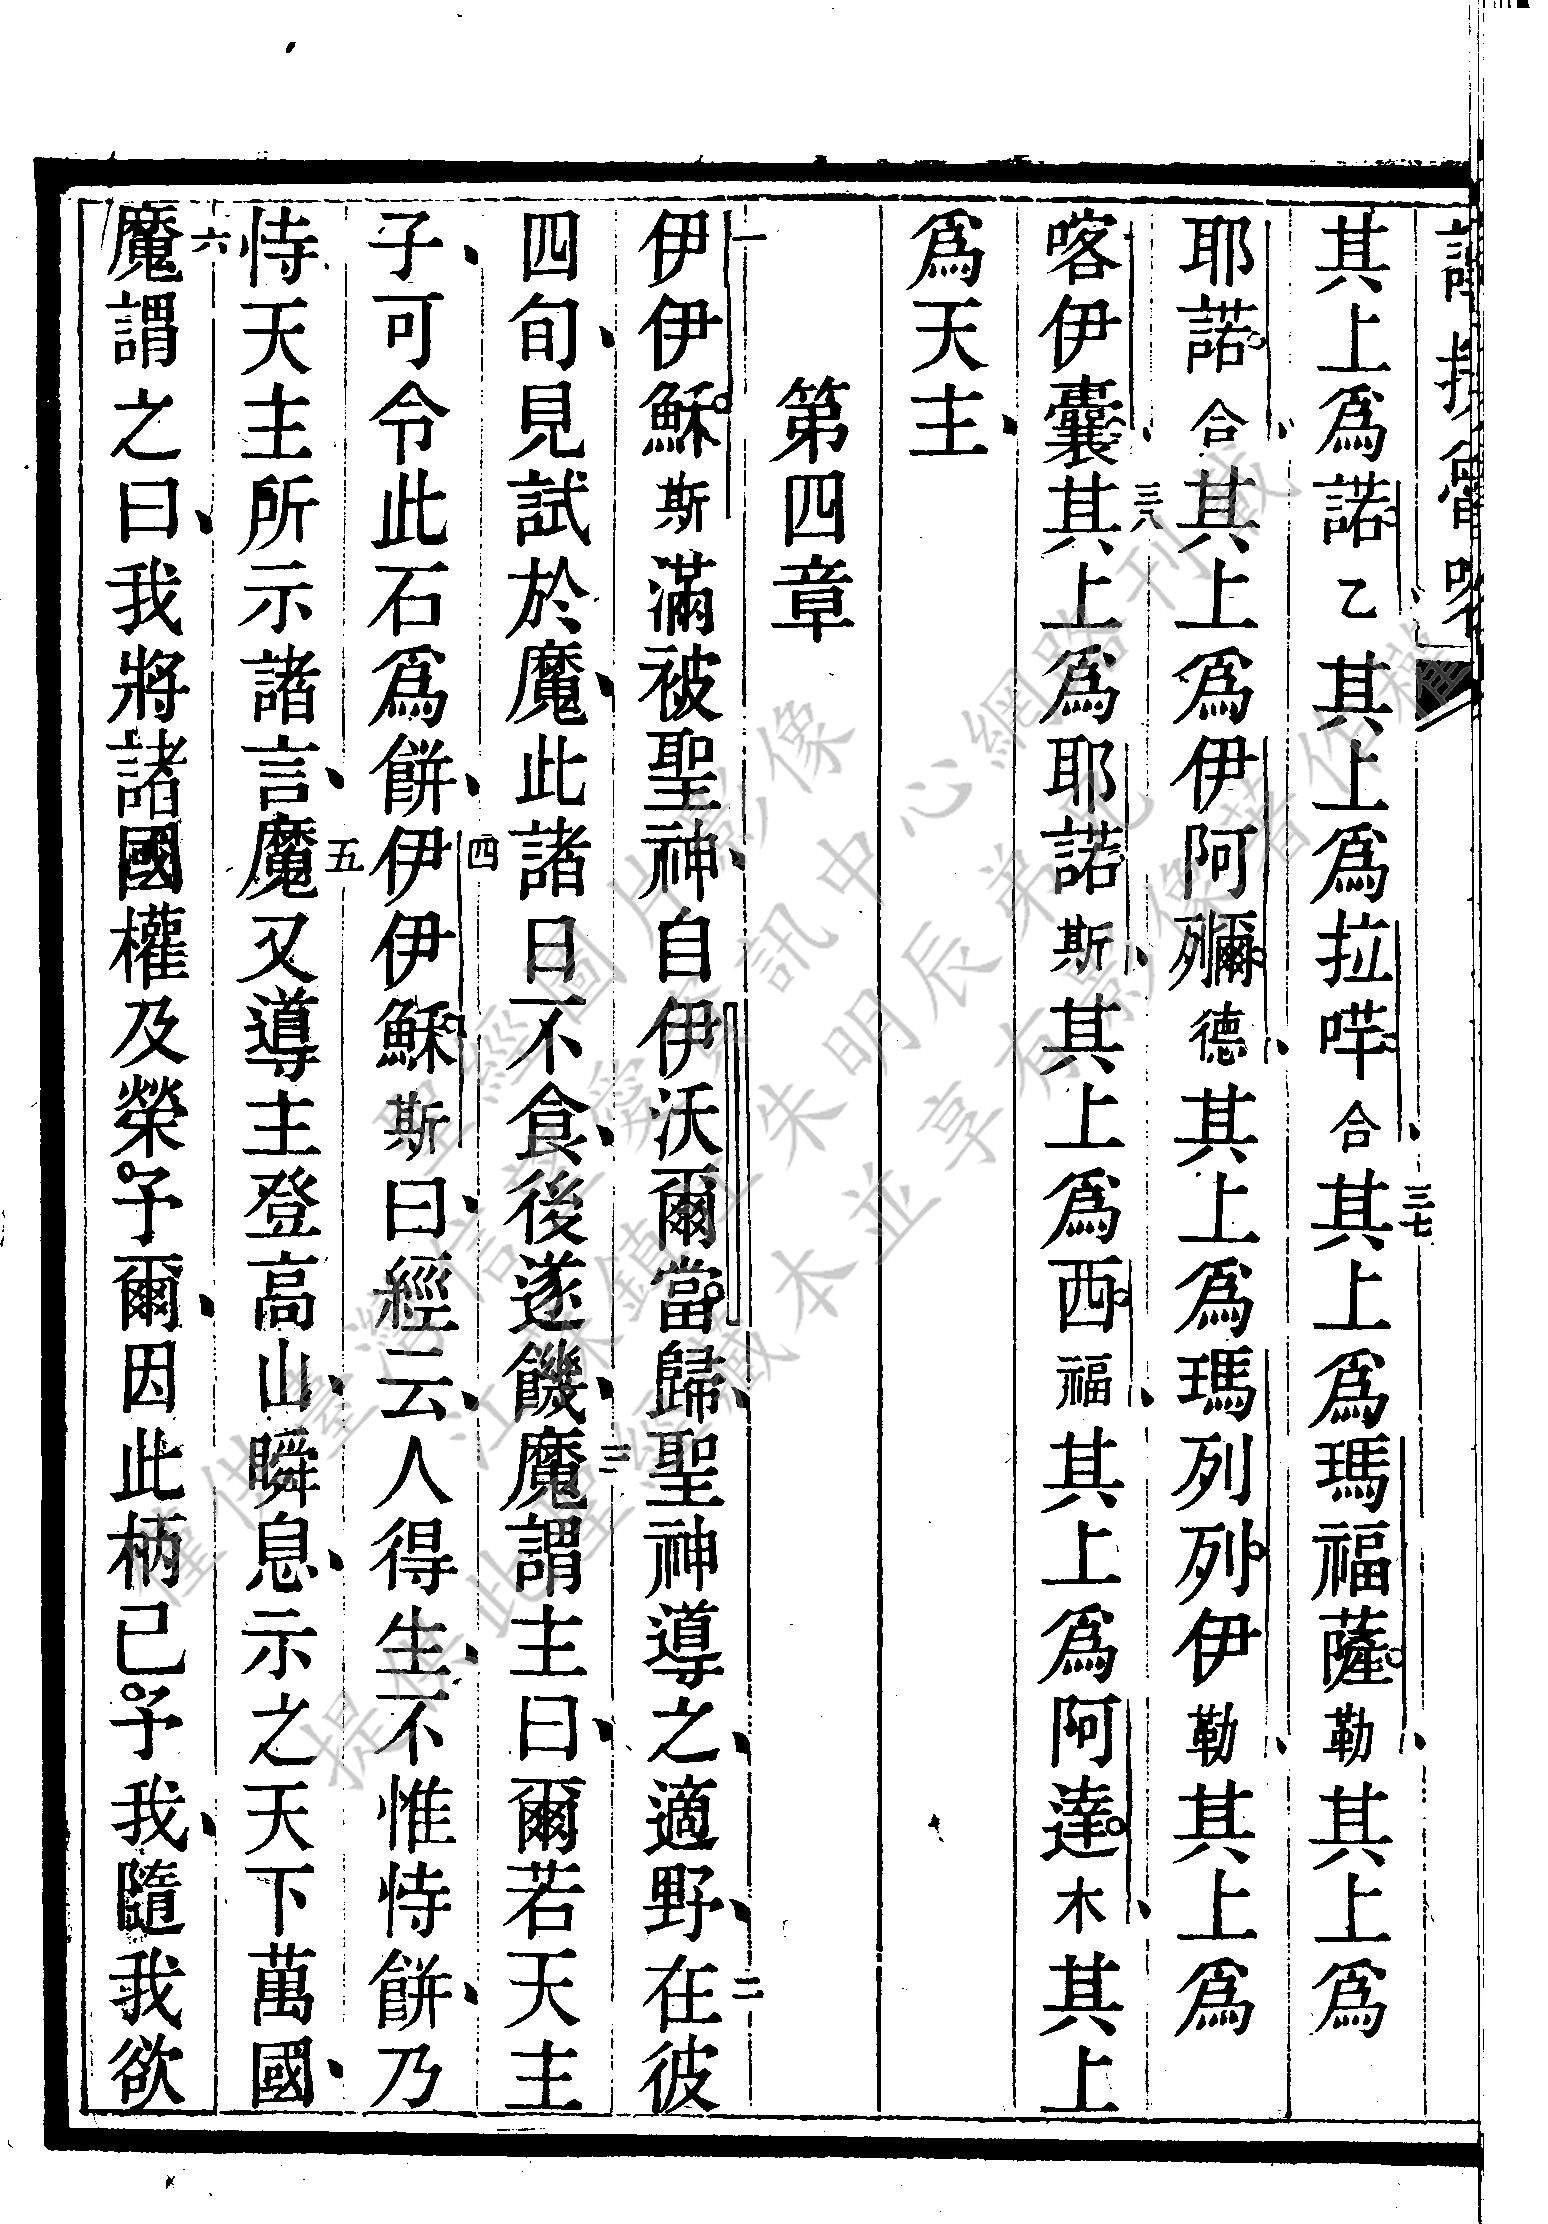 其上爲諾乙其上爲拉哶合三七其上爲瑪福薩勒其上爲
耶諾合其上爲伊阿彌列德其上爲瑪列列伊勒其上爲
喀伊囊三八其上爲耶諾斯其上爲西福其上爲阿達木其上
爲天主
第四章
一伊伊穌斯滿被聖神自伊沃爾當歸聖神導之適野二在彼
四旬見試於魔此諸日不食後遂饑三魔謂主曰爾若天主
子可令此石爲餅四伊伊穌斯曰經云人得生不惟恃餅乃
恃天主所示諸言五魔又導主登高山瞬息示之天下萬國
六魔謂之曰我將諸國權及榮予爾因此柄已予我隨我欲
僅供臺灣信望愛資訊中心網路刊載
聖經圖片影像
提供此聖經藏本並享有影像著作權